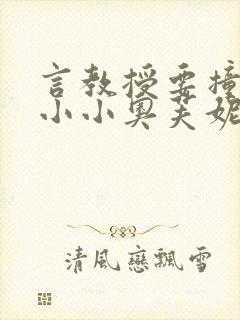 言教授要撞
小小奧芙妮
清風戀飄雪